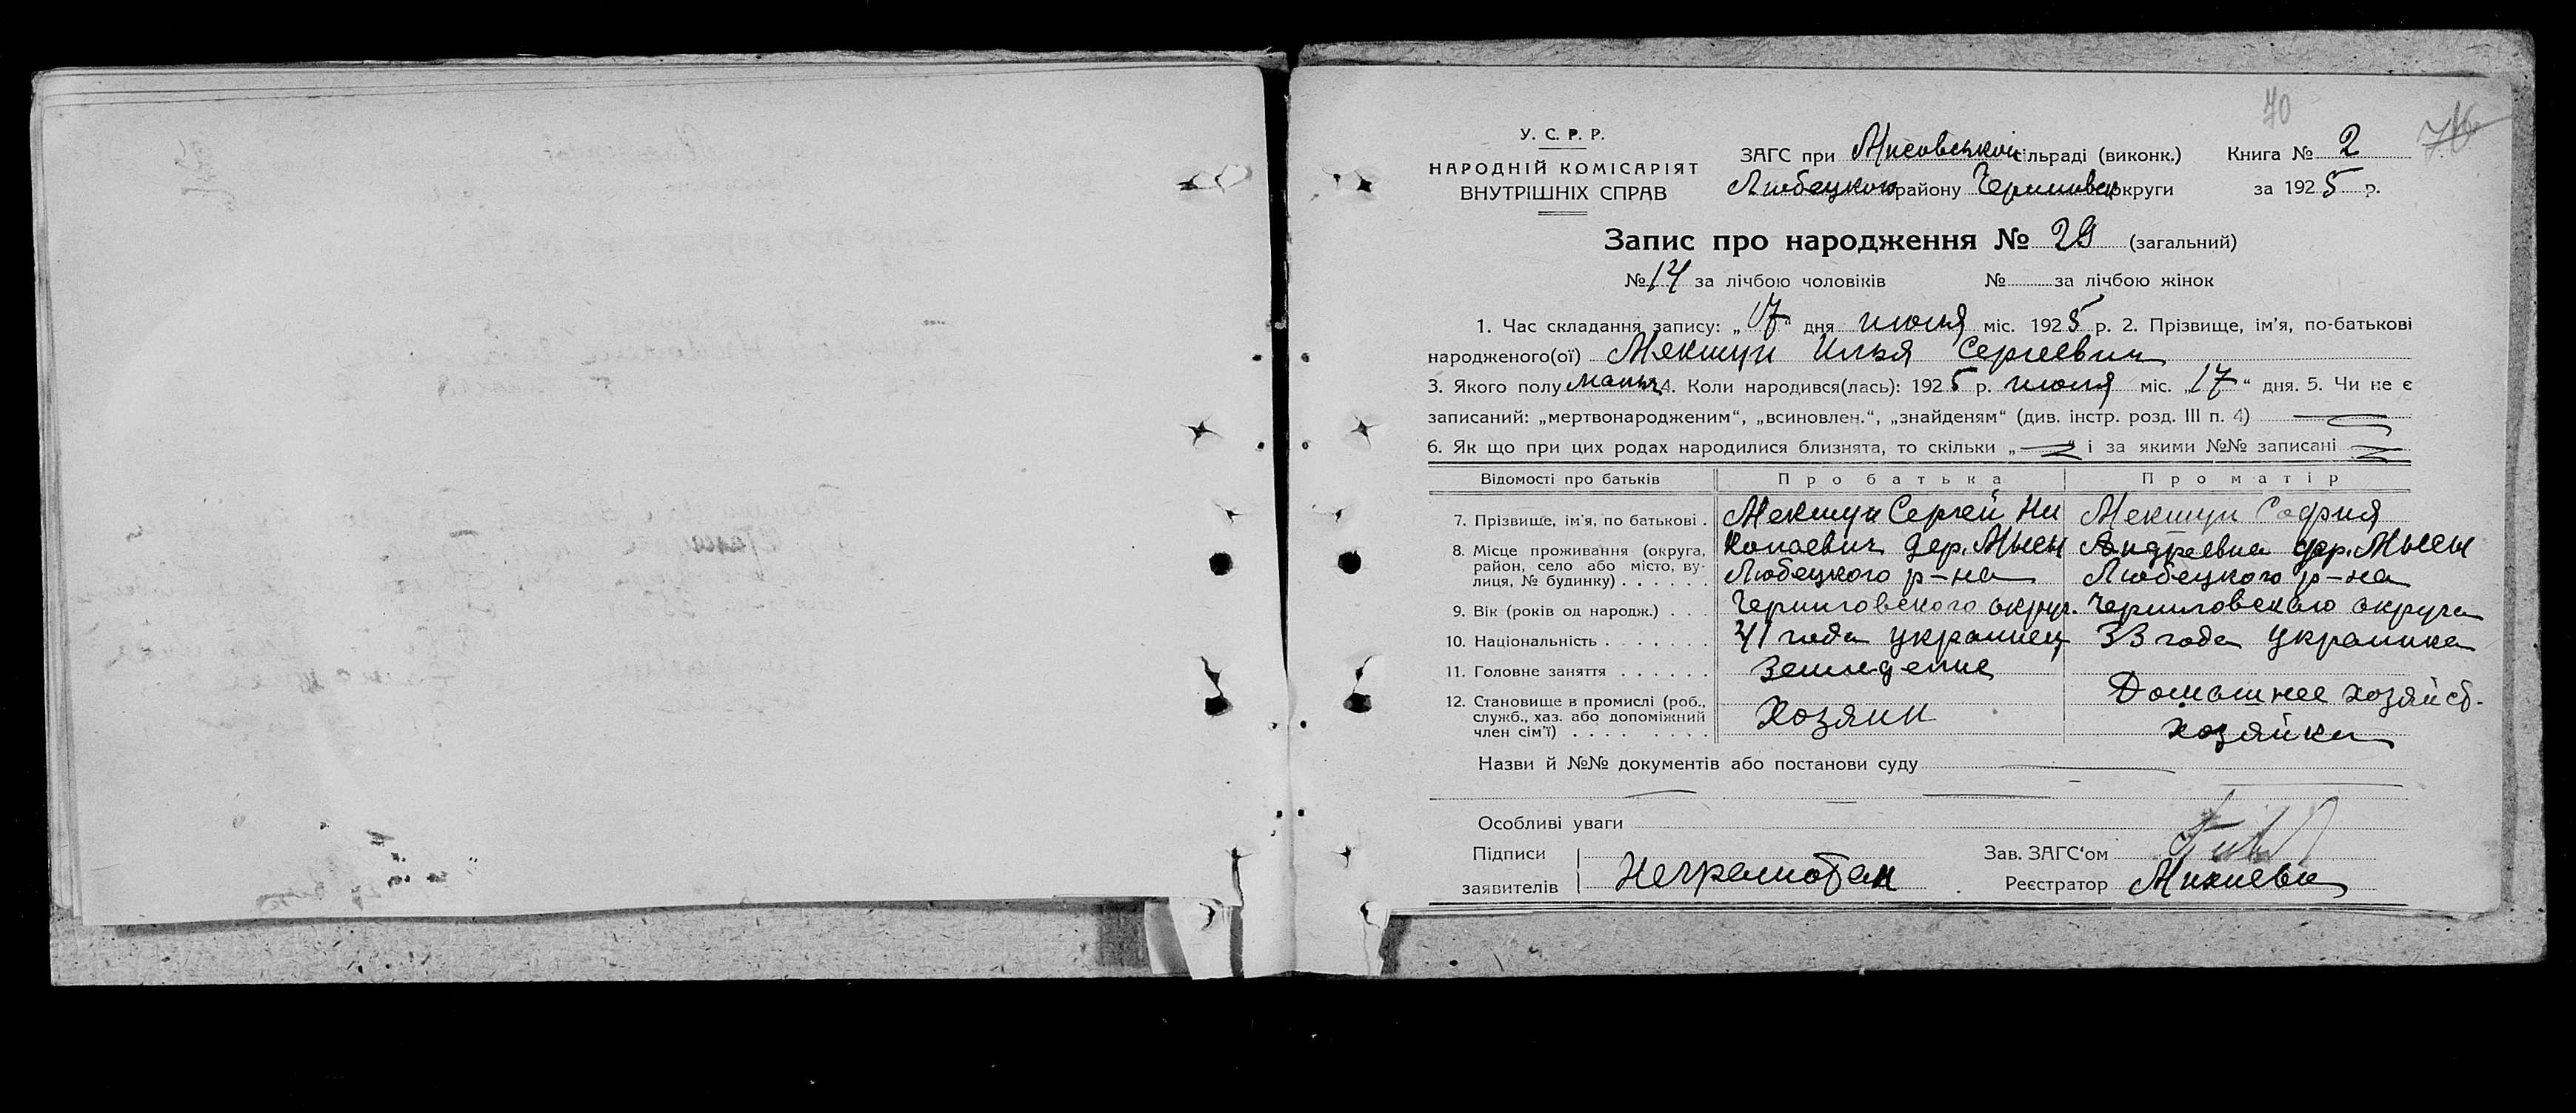 70
76
У. С. Р. Р.
НАРОДНІЙ КОМІСАРІЯТ
ВНУТРІШНІХ СПРАВ
ЗАГС при Мисовской сільраді (виконк.) Книга № 2
Любецкого району Черниговск округи за 1925 р.
Запис про народження № 29 (загальний)
№ 14 за лічбою чоловіків № за лічбою жінок
1. Час складання запису: „17“ дня июля міс. 1925 р. 2. Прізвище, ім'я, по-батькові
народженого(ої) Мекшун Илья Сергеевич
3. Якого полу мальч 4. Коли народився(лась): 1925 р. июля міс. „17“ дня. 5. Чи не є
записаний: „мертвонародженим“, „всиновлен.“, „знайденям“ (див. інстр. розд. III п. 4)
6. Як що при цих родах народилися близнята, то скільки „ “ і за якими №№ записані
Відомості про батьків Про батька Про матір
7. Прізвище, ім'я, по батькові . Мекшун Сергей Ни Мекшун София
8. Місце проживання (округа, район, село або місто, ву- лиця, № будинку) . . . . . . колаевич дер. Мысы Андреевна дер. Мысы
Любецкого р-на Любецкого р-на
9. Вік (років од народж.) . . . Черниговского округ. Черниговского округа
10. Національність . . . . . . . 41 года украинец 33 года украинка
11. Головне заняття . . . . . . Земледелие
Домашнее хозяйст.
12. Становище в промислі (роб., служб., хаз. або допоміжний член сім'ї) . . . . . . . . Хозяин хозяйка
Назви й №№ документів або постанови суду
Особливі уваги
Підписи Зав. ЗАГС'ом
заявителів Неграмотан Реєстратор